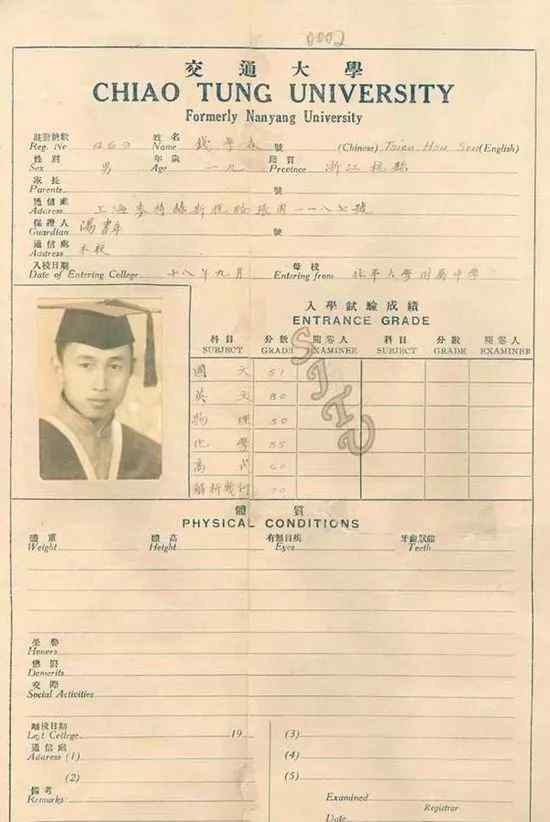 0002
交通大學
CHIAO TUNG UNIVERSITY
Formerly Nanyang University
註冊號數 姓名 號
Reg. No 469 Name 錢學森 (Chinese) Tsien Hsu Sen (English)
性別 年歲 籍貫
Sex 男 Age 一九 Province 浙江杭縣
家長 號
Parents
通信處
Address 上海麥特赫斯脫路張園一一八七號
保證人
Guardian 湯書年 號
通信處
Address 本校
入校日期 母校
Date of Entering College 十八年九月 Entering from 北平大學附屬中學
入學試驗成績
ENTRANCE GRADE
科目 分數 閱卷人 科目 分數 閱卷人
SUBJECT GRADE EXAMINER SUBJECT GRADE EXAMINER
國文 51
英文 80
物理 50
化學 55
高代 60
解析幾何 70
SJTU
體質
PHYSICAL CONDITIONS
體重 體高 有無目疾 牙齒
Weight Height Eyes Teeth
榮譽
Honors
懲罰
Demerits
交際
Social Activities
離校日期
Left College 19 (3)
通信處
Address (1) (4)
(2) (5)
備考
Remarks Examined
Registrar
Date